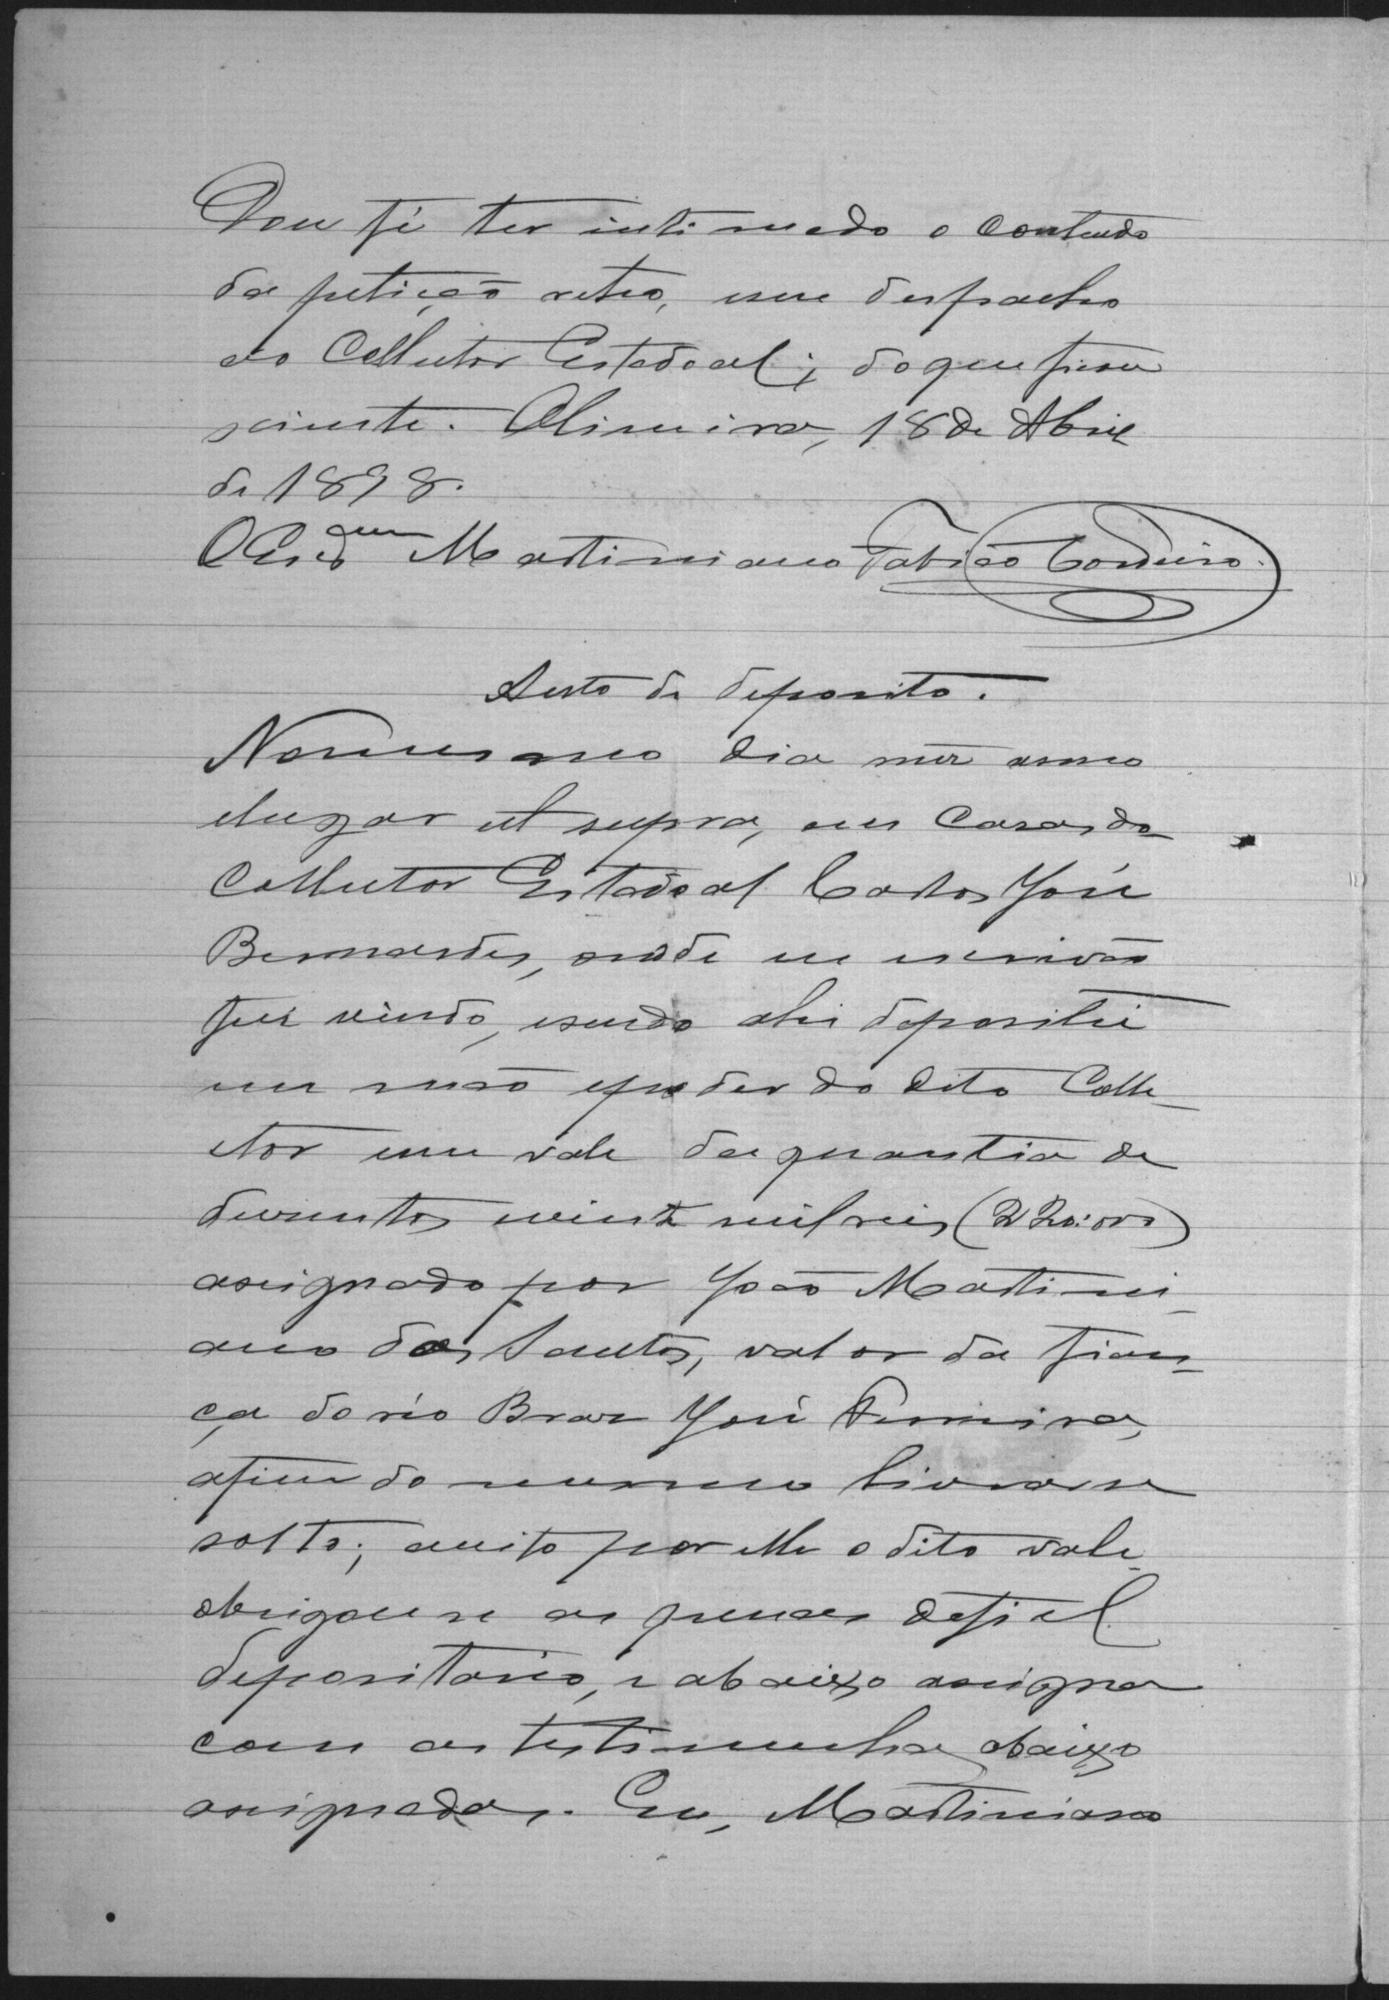 Dou fé ter intimado o contendo
da petição retro, e seu despacho
ao Collector Estadoal; do que ficou
sciente. Oliveira, 18 de Abril
de 1898.
O Escr.am Martimiano Fabião Cordeiro.
Auto de deposito.
No mesmo dia mez anno
e lugar ut supra, em casa do
Collector Estadoal Carlos José
Bernardes, onde eu escrivão
fui vindo, e sendo ahi depositei
em mão e poder do dito Colle-
ctor um vale da quantia de
dusentos vinte mil reis (220:000)
assignado por João Martimi-
ano dos Santos, valor da fian-
ça do réo Braz José Ferreira,
afim do mesmo livrar se
solto; aceito por elle o dito vale
obrigou se as penas de fiel
depositario, e abaixo assigna
com as testimunhas abaixo
assignadas. Eu, Martimiano